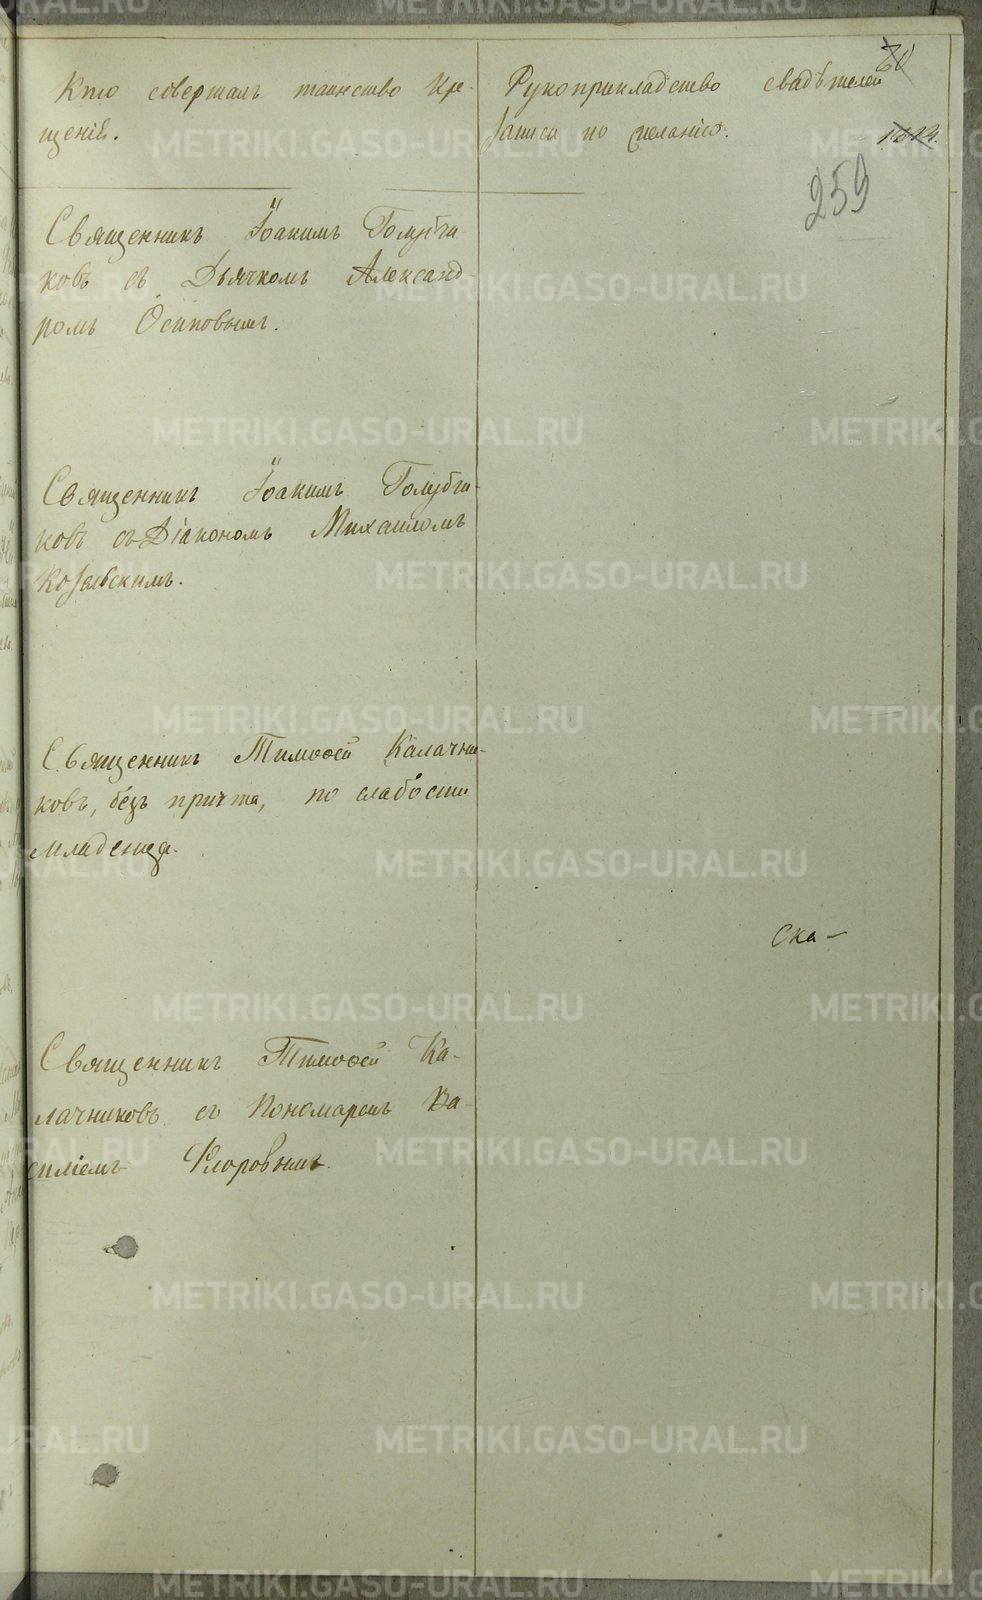 80
Кто совершалъ таинство Кре-
щенія.
Рукоприкладство свидѣтелей
записи по желанію.
259
Священникъ Іоакимъ Голубчи
ковъ съ Дьячкомъ Александ-
ромъ Осиповымъ.
Священникъ Іоакимъ Голубчи-
ковъ съ Діакономъ Михаиломъ
Козельскимъ.
Священникъ Тимоѳей Калачни-
ковъ, безъ причта, по слабости
младенца.
ска-
Священникъ Тимоѳей Ка-
лачниковъ съ Пономаремъ Ва-
силіемъ Флоровымъ.
METRIKI.GASO-URAL.RU